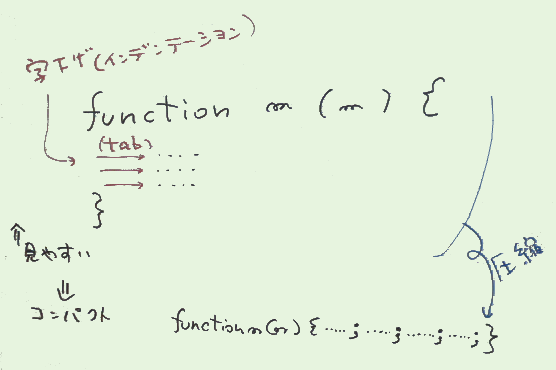 字下げ(インデンテーション)
function m (m) {
(tab)
....
....
....
}
見やすい
⇓
コンパクト
圧縮
function m(m) { ....; ....; ...; ...; }